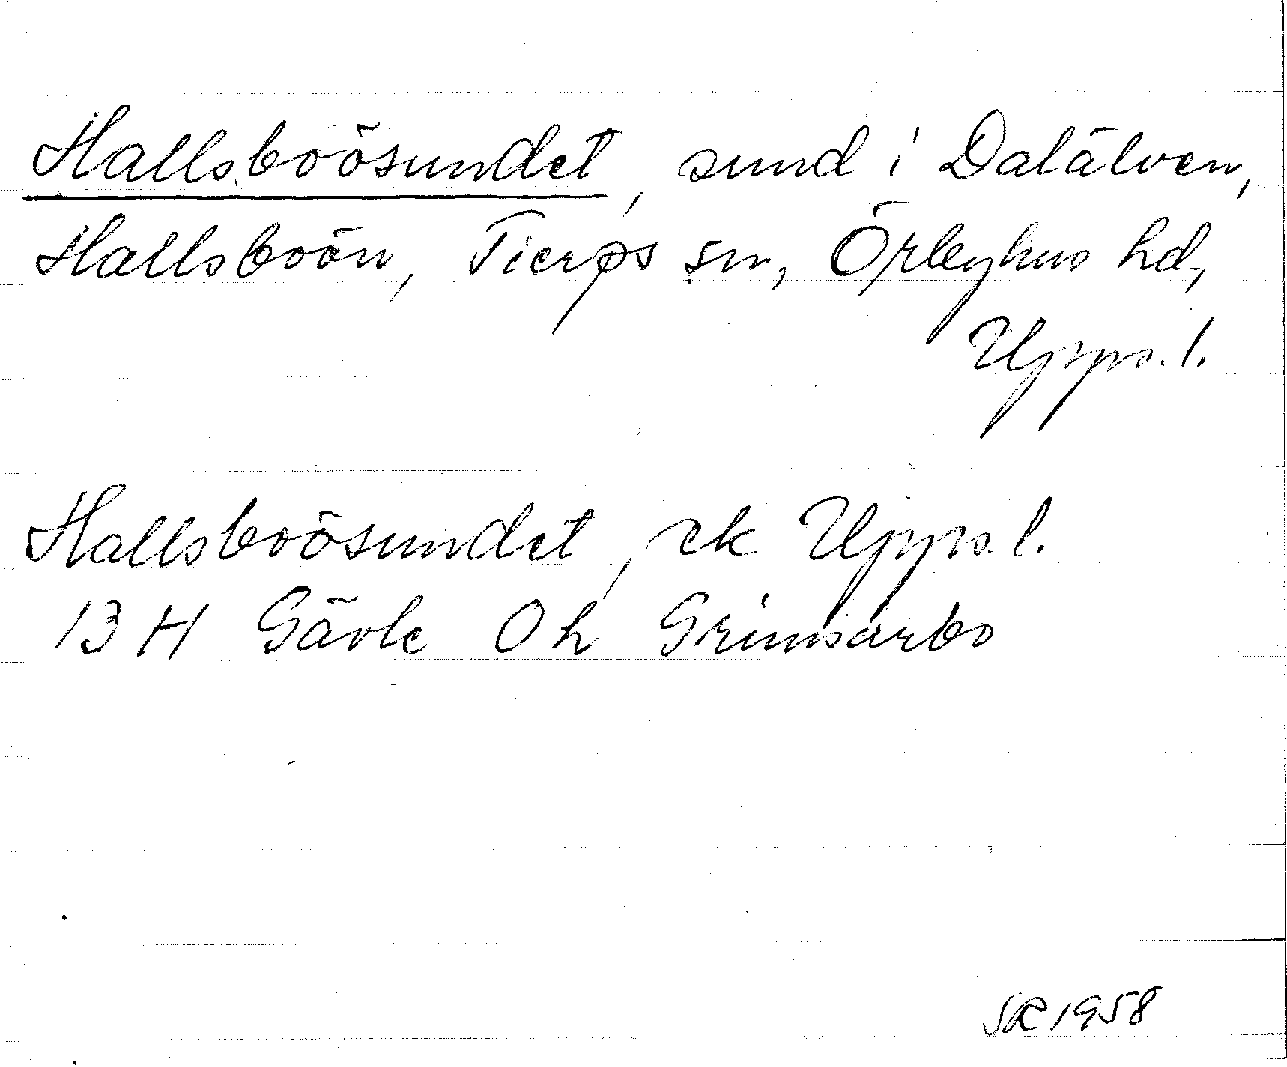 Hallsboösundet, sund i Dalälven,
Hallsboön, Tierps sn, Örbyhus hd,
Upps. l.
Hallsboösundet, ek Upps. l.
13 H Gävle Oh Grimsarbo
SR 1958